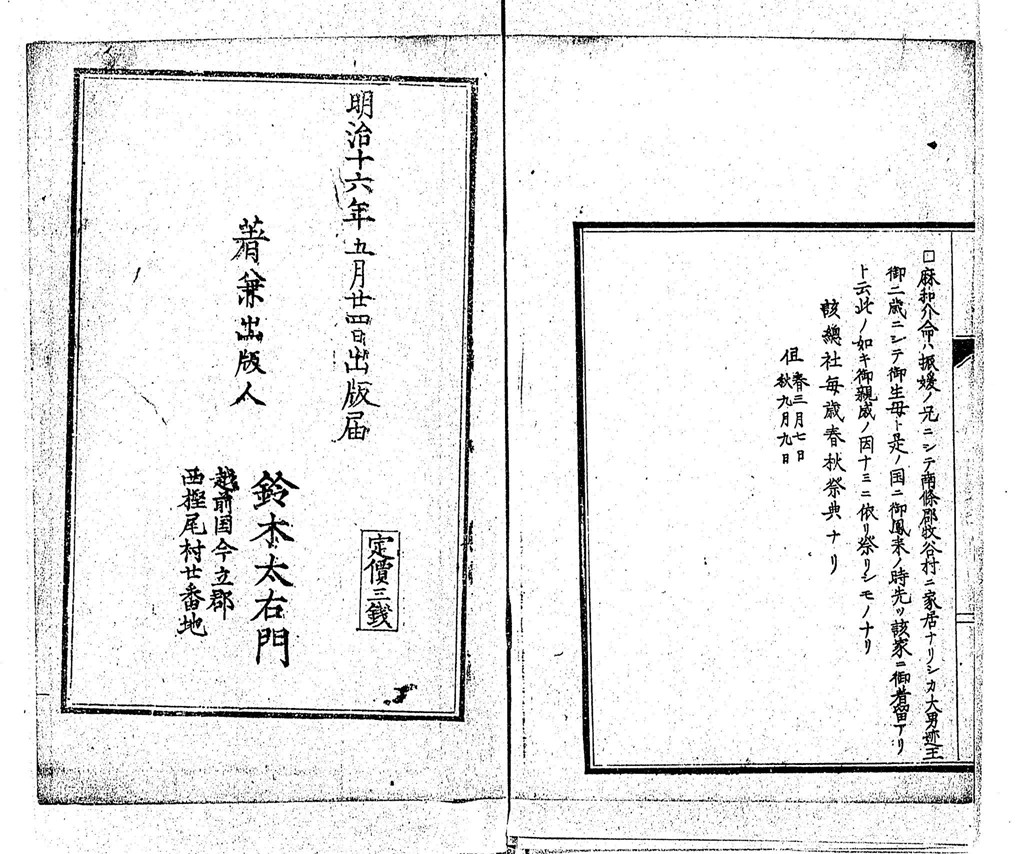 □麻和介命ハ振媛ノ兄ニシテ南條郡牧谷村ニ家居ナリシカ大男迹王
御二歳ニシテ御生母ト是ノ国ニ御鳳来ノ時先ッ該家ニ御着留アリ
ト云此ノ如キ御親戚ノ因ナミニ依リ祭リシモノナリ
該總社毎歳春秋祭典ナリ
但 春三月七日
秋九月九日
明治十六年五月廿四日出版届
定價三銭
著兼出版人
鈴木太右門
越前国今立郡
西樫尾村廿番地